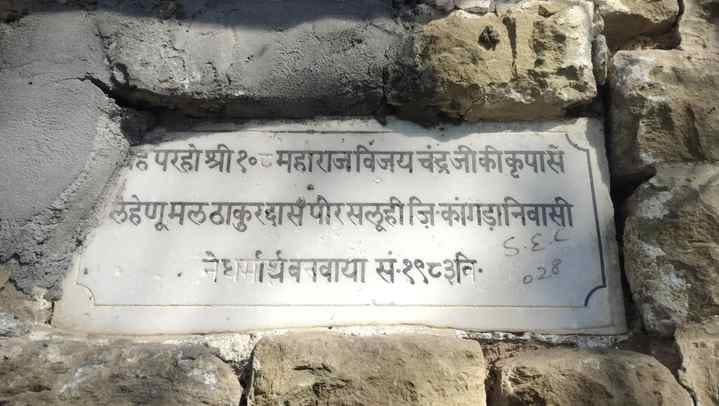 परहो श्री १०८ महाराज विजय चंद्र जी की कृपा सें
लेहणूमल ठाकुरदास पीरसलूही ज़ि॰ कांगड़ा निवासी
ने धर्मार्थ बनवाया सं॰ १९८३ वि॰
S.E.C
028